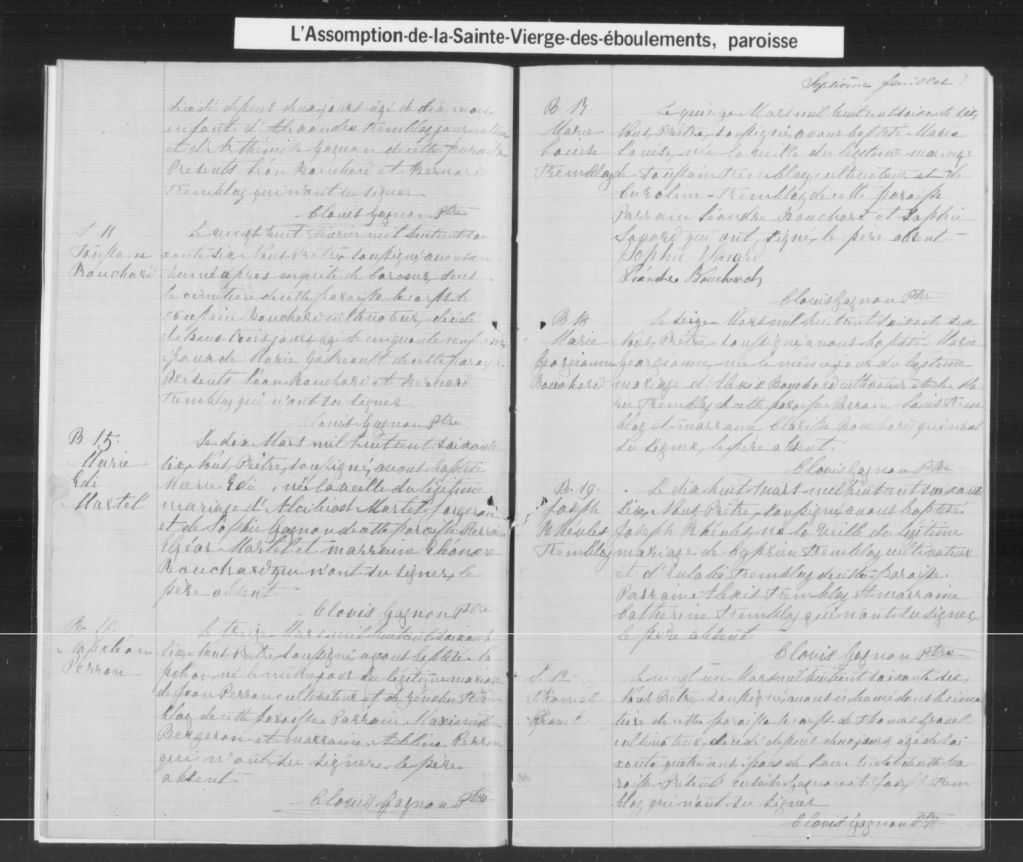 L'Assomption-de-la-Sainte-Vierge-des-éboulements, paroisse
décédé depuis deux jours âgé de dix mois
enfant d'Alexandre Tremblay journalier
et de Gagnon de cette paroisse
Présents Léon Bouchard et Bernard
Tremblay qui n'ont su signer
Clovis Gagnon Ptre
S 11
Bouchard
Le vingt huit février mil huit cent soi
xante six Nous Prêtre soussigné avons in
humé après enquête de dans
le cimetière de cette paroisse le corps de
Bouchard cultivateur, décédé
depuis trois jours âgé de cinquante
époux de Marie Godreault de cette paroisse
Présents Léon Bouchard et Bernard
Tremblay qui n'ont su signer
Clovis Gagnon Ptre
B 15.
Marie
Edé
Martel
Le dix Mars mil huit cent soixante
six, Nous Prêtre, soussigné, avons baptisé
Marie Edé, née la veille du légitime
mariage d' Martel forgeron
et de Sophie Gagnon de cette paroisse Parrain
Elzéar Martel et marraine Eléonore
Bouchard qui n'ont su signer, le
père absent
Clovis Gagnon Ptre
B.
Napoléon
Perron
Le treize Mars mil huit cent soixante
six, Nous Prêtre soussigné avons baptisé Na
poléon, né le même jour du légitime mariage
de Jean Perron cultivateur et de Trem
blay de cette paroisse Parrain
Bergeron et marraine Adeline Perron
qui n'ont su signer, le père
absent
Clovis Gagnon Ptre
Septième feuillet
B. 17
Marie
Louise
Tremblay
Le quinze Mars mil huit cent soixante six,
Nous Prêtre, soussigné, avons baptisé Marie
Louise, née la veille du légitime mariage
de Tremblay cultivateur et de
Caroline Tremblay de cette paroisse
Parrain Léandre Bouchard et Sophie
Savard qui ont signé, le père absent
Sophie Savard
Léandre Bouchard
Clovis Gagnon Ptre
B 18
Marie
Georgianne
Bouchard
Le seize Mars mil huit cent soixante six
Nous Prêtre soussigné avons baptisé Marie
Georgianne, née le même jour du légitime
mariage d'Alexis Bouchard cultivateur et de Ma
rie Tremblay de cette paroisse Parrain Louis Trem
blay et marraine Bouchard qui n'ont
su signer, le père absent.
Clovis Gagnon Ptre
B. 19.
Joseph
Tremblay
Le dix huit Mars mil huit cent soixante
six, Nous Prêtre, soussigné, avons baptisé
Joseph né la veille du légitime
mariage de Cyprien Tremblay cultivateur
et d'Eulalie Tremblay de cette paroisse.
Parrain Alexis Tremblay et marraine
Catherine Tremblay qui n'ont su signer
le père absent
Clovis Gagnon Ptre
S. 12.
Thomas
Gravel
Le vingt un Mars mil huit cent soixante six,
Nous Prêtre, soussigné, avons inhumé dans le cime
tière de cette paroisse le corps de Thomas Gravel
cultivateur, décédé depuis deux jours, âgé de soi
xante quatre ans, époux de de cette pa
roisse. Présents Gagnon et Joseph Trem
blay qui n'ont su signer
Clovis Gagnon Ptre